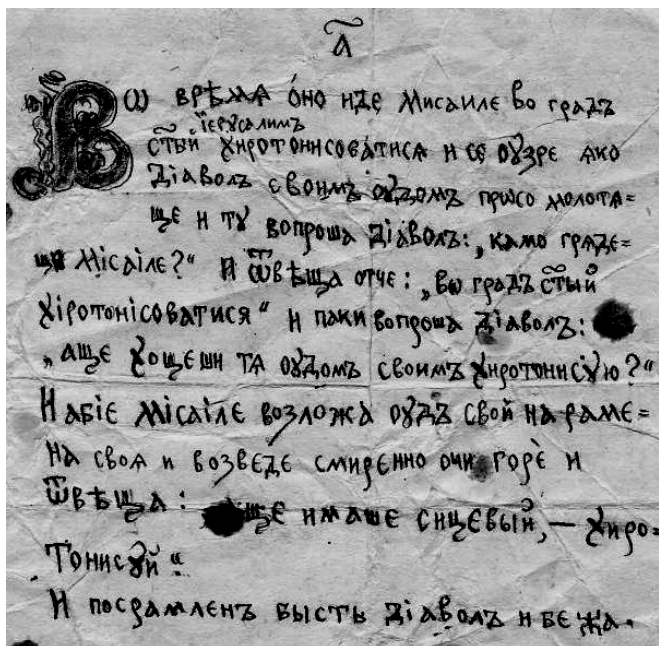 а҃
Во врѣмѧ о́но иде Мисаиле во градъ
ст҃ый їерꙋсалимъ хиротонисова́тисѧ и се оу҆зре ꙗко
Дїаволъ своимъ оу҆домъ просо молотѧ=
ще и тꙋ вопроша дїа́волъ: „камо грѧде=
ши Місаіле?“ И ѿвѣща отче: „во градъ ст҃ый
хіротонісоватися“ И паки вопроша дїа́волъ:
„аще хощеши тѧ оудомъ своимъ хиротонисꙋю?“
И абіе Місаіле возложа оудъ свой на раме=
на своѧ и возведе смиренно очи горѐ и
ѿвѣща: ще имаше сицевый, — хиро=
тонисꙋй“
И посрамленъ бысть дїаволъ и бежа.